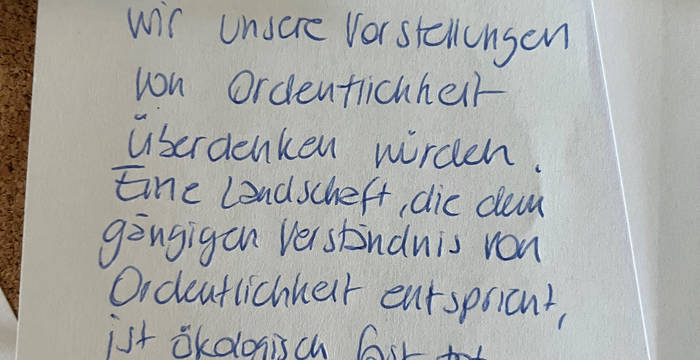 wir unsere Vorstellungen
von Ordentlichkeit
Überdenken würden.
Eine Landschaft, die dem
gängigen Verständnis von
Ordentlichkeit entspricht,
ist ökologisch fast tot